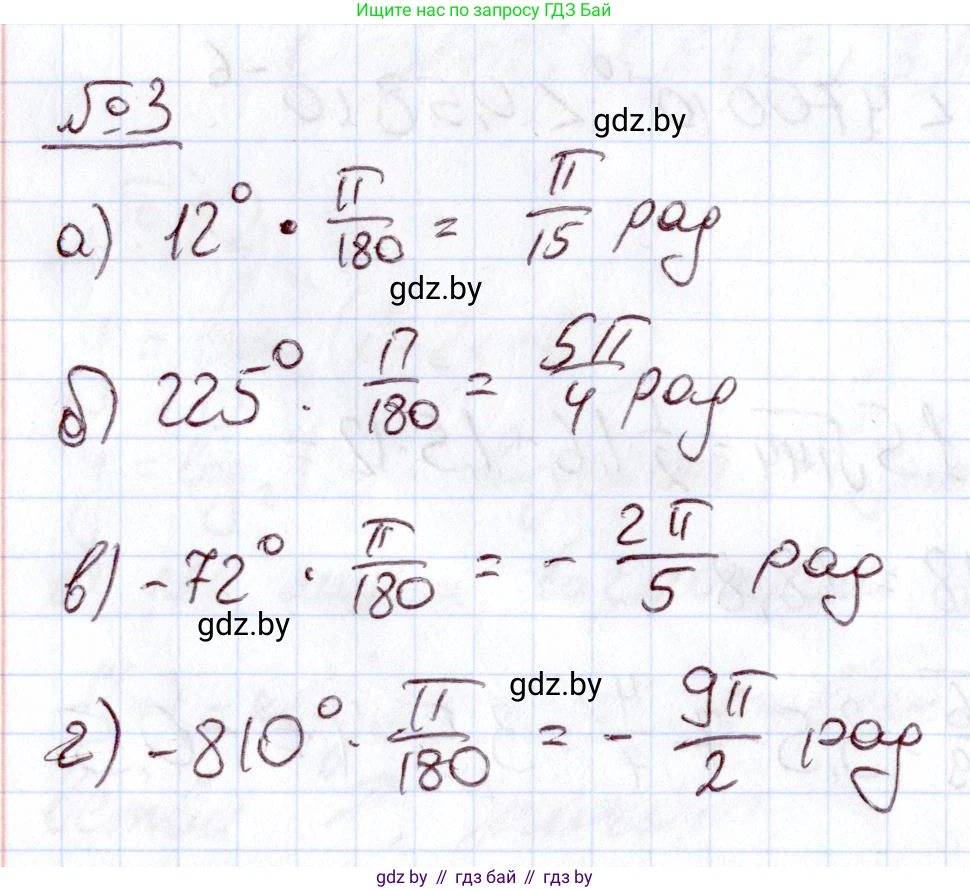 Ищите нас по запросу ГДЗ Бай
№3
gdz.by
а) 12° · π/180 = π/15 рад
gdz.by
б) 225° · π/180 = 5π/4 рад
в) -72° · π/180 = - 2π/5 рад
gdz.by
gdz.by
г) -810° · π/180 = - 9π/2 рад
gdz.by // гдз бай // гдз by